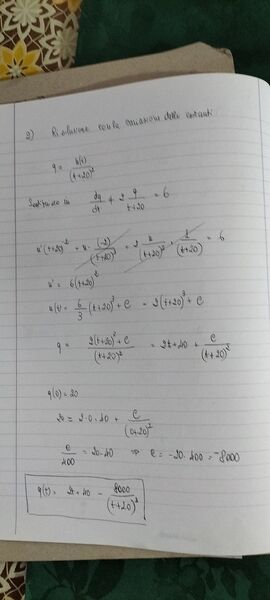 2) Risolvere con la variazione delle costanti
q = u(t) / (t+20)²
Sostituire in dq/dt + 2 q/(t+20) = 6
u'(t+20)⁻² + u · (-2)/(t+20)³ + 2 u/(t+20)² · 1/(t+20) = 6
u' = 6(t+20)²
u(t) = 6/3 (t+20)³ + C = 2(t+20)³ + C
q = 2(t+20)³ + C / (t+20)² = 2t+40 + C/(t+20)²
q(0) = 20
20 = 2·0+40 + C/(0+20)²
C/400 = 20-40 ⇒ C = -20·400 = -8000
q(t) = 2t+40 - 8000/(t+20)²